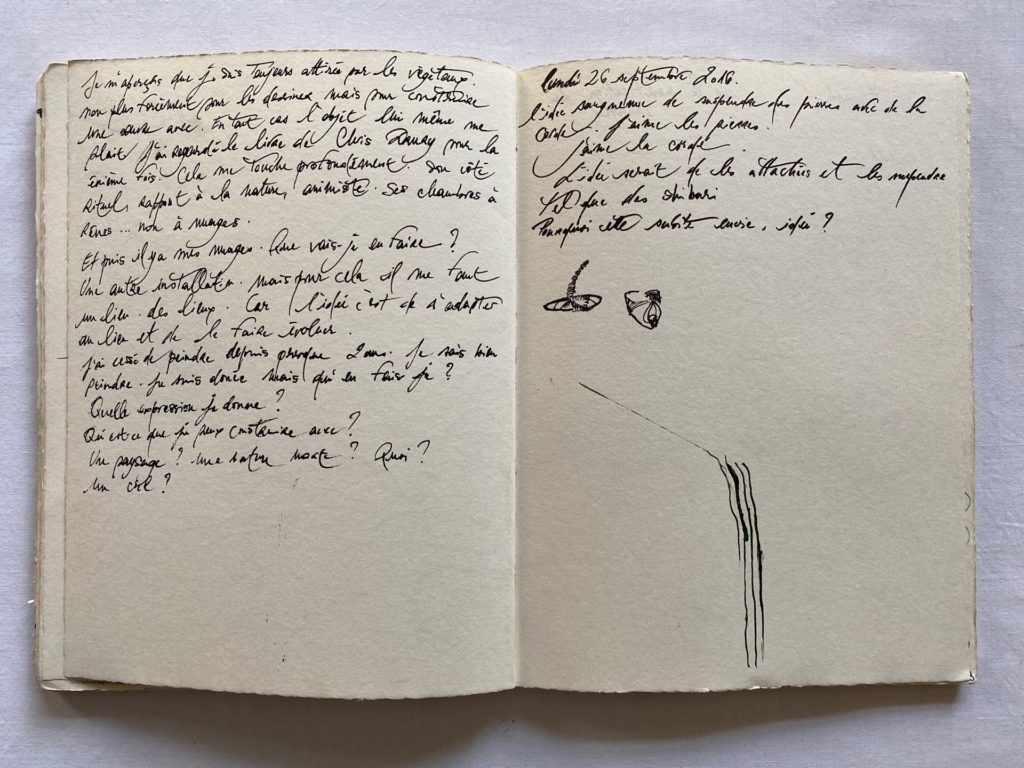 Je m'aperçois que je suis toujours attirée par les végétaux.
non plus forcément pour les dessiner mais pour construire
une œuvre avec. En tout cas l'objet lui même me
plait. J'ai regardé le livre de Chris Drury pour la
énième fois. Cela me touche profondément. Son côté
rituel, rapport à la nature, animiste. Ses chambres à
rêves... non à nuages.
Et puis il y a mes nuages. Que vais-je en faire ?
Une autre installation. mais pour cela il me faut
un lieu. des lieux. Car l'idée c'est de s'adapter
au lieu et de le faire évoluer.
J'ai cessé de peindre depuis presque 2 ans. Je sais bien
peindre. Je suis douée mais qu'en fais je ?
Quelle expression je donne ?
Qu'est-ce que je peux construire avec ?
Un paysage ? une nature morte ? Quoi ?
un ciel ?
lundi 26 septembre 2016.
l'idée saugrenue de suspendre des pierres avec de la
corde. J'aime les pierres.
J'aime la corde.
L'idée serait de les attacher et les suspendre
tel que des shibari
Pourquoi cette subite envie, idée ?